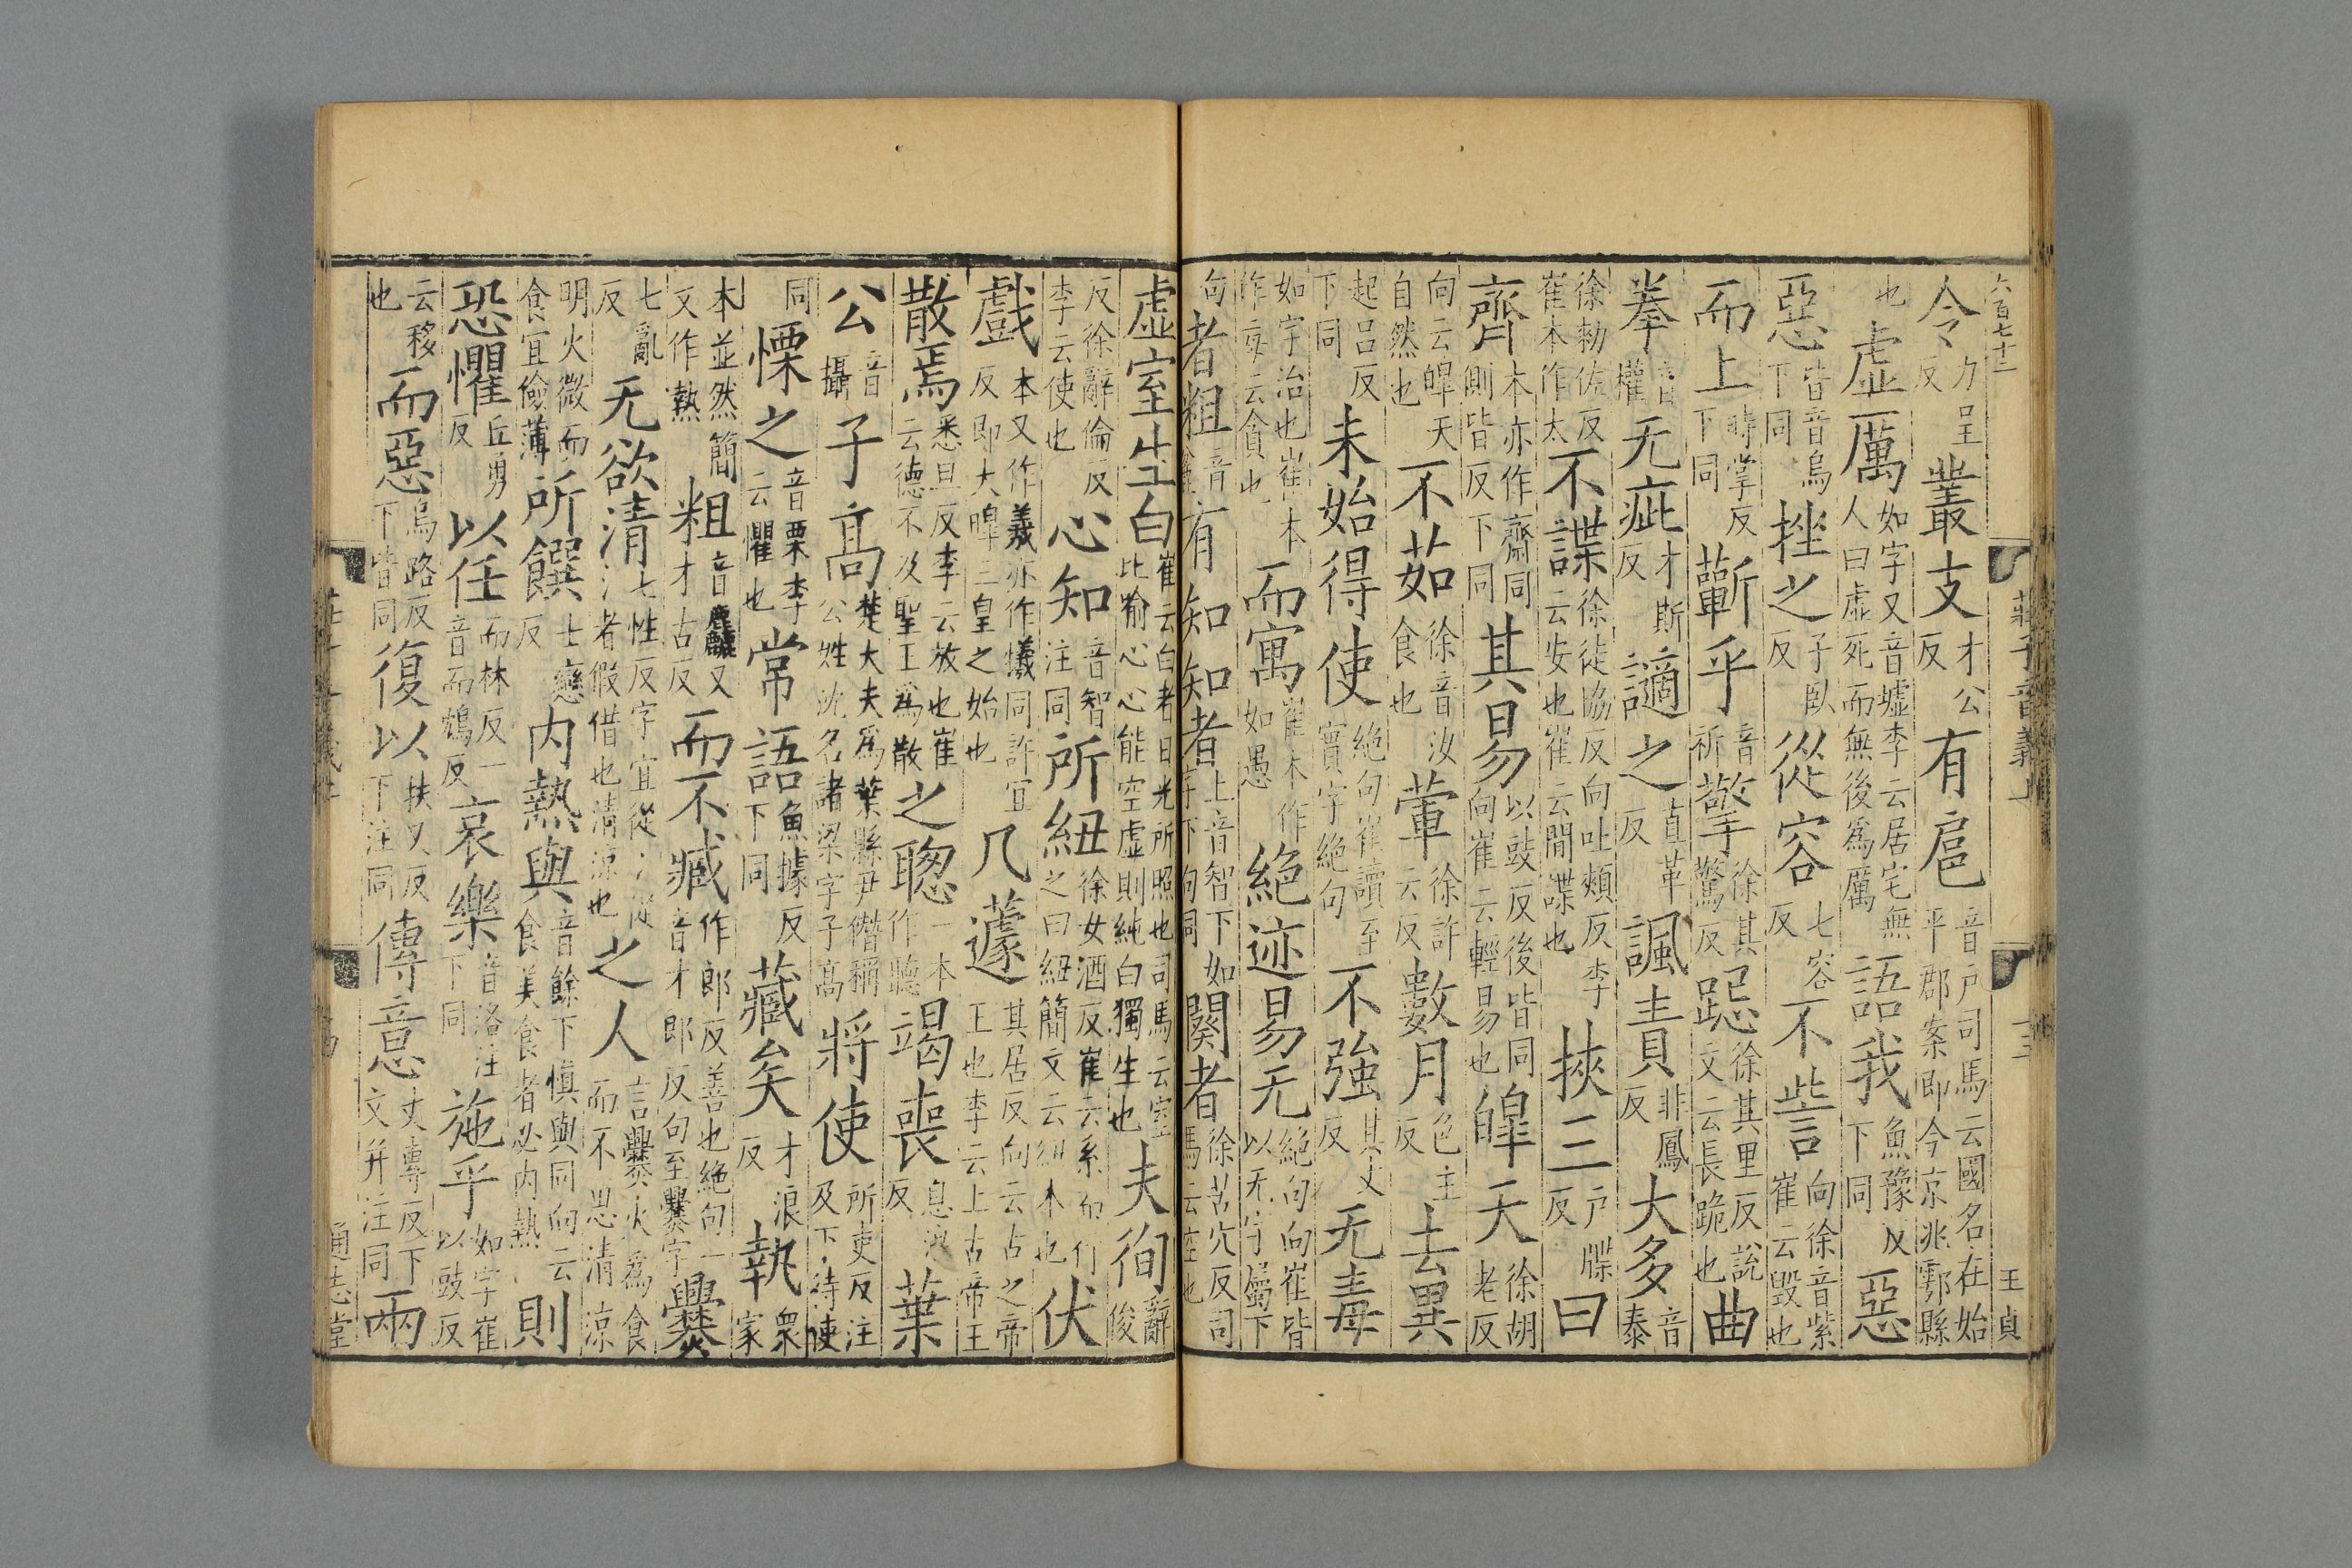 六百七十二 莊子音義上 十三 王貞
令力呈反叢支才公反有扈音戶司馬云國名在始平郡案即今京兆鄠縣
也虛厲如字又音墟李云居宅無人曰虛死而無後爲厲語我魚豫反下同惡
惡皆音烏下同挫之子臥反從容七容反不訾向徐音紫崔云毀也
而上時掌反下同蘄乎音祈擎徐其驚反跽徐其里反說文云長跪也曲
拳音權无疵才斯反讁之直革反諷責非鳳反大多音泰
徐勑佐反崔本作太不諜徐徒協反向吐頰反李云安也崔云間諜也挾三戶牒反曰
齊本亦作齋同側皆反下同其易以豉反後皆同向崔云輕易也皞天徐胡老反
向云皞天自然也不茹徐音汝食也葷徐許云反數月色主反去異
起呂反下同未始得使絶句崔讀至實字絶句不強其丈反无毒
如字治也崔本作每云貪也而寓崔本作如愚絶迹易无絶句向崔皆以无字屬下
句者粗音麤有知知者上音智下如字下句同闋者徐苦穴反司馬云空也
虛室生白崔云白者日光所照也司馬云室比喻心心能空虛則純白獨生也夫徇辭俊
反徐辭倫反李云使也心知音智注同所紐徐女酒反崔云系而行之曰紐簡文云紐本也伏
戲本又作羲亦作犧同許宜反即大皞三皇之始也几蘧其居反向云古之帝王也李云上古帝王
散焉悉旦反李云放也崔云德不及聖王爲散之聦一本作聽竭喪息浪反葉
公音攝子高楚大夫爲葉縣尹僭稱公姓沈名諸梁字子高將使所吏反注及下待使
同慄之音栗李云懼也常語魚據反下同藏矣才浪反執衆家
本並然簡文作熱粗音麤又才古反而不臧作郎反善也絶句一音才郎反句至爨字爨
七亂反无欲清七性反字宜從冫從氵者假借也清涼也之人言爨火爲食而不思清涼
明火微而食宜儉薄所饌士戀反内熱與音餘下慎與同向云食美食者必内熱則
恐懼丘勇反以任而林反一音而鴆反哀樂音洛注下同施乎如字崔以豉反
云移也而惡烏路反下皆同復以扶又反下注同傳意丈專反下文并注同兩
通志堂